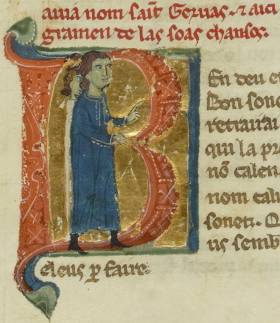 auia nom saīt Geruas. ⁊ aici
gramen de las soas chansos.
En deu et
Bon sone
retraurai
qui la pr
nō calen
nom cali
sonet. Q
us semb
aleus ꝑ faire.